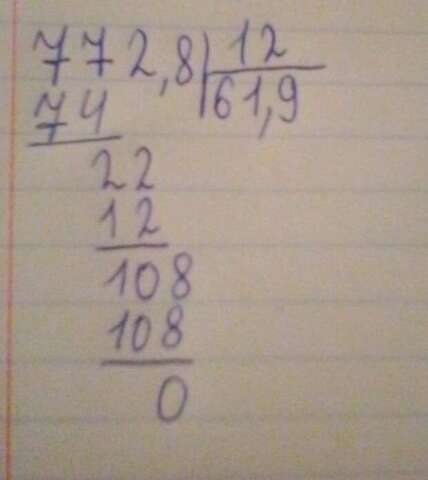 772,8 12
74 61,9
22
12
108
108
0